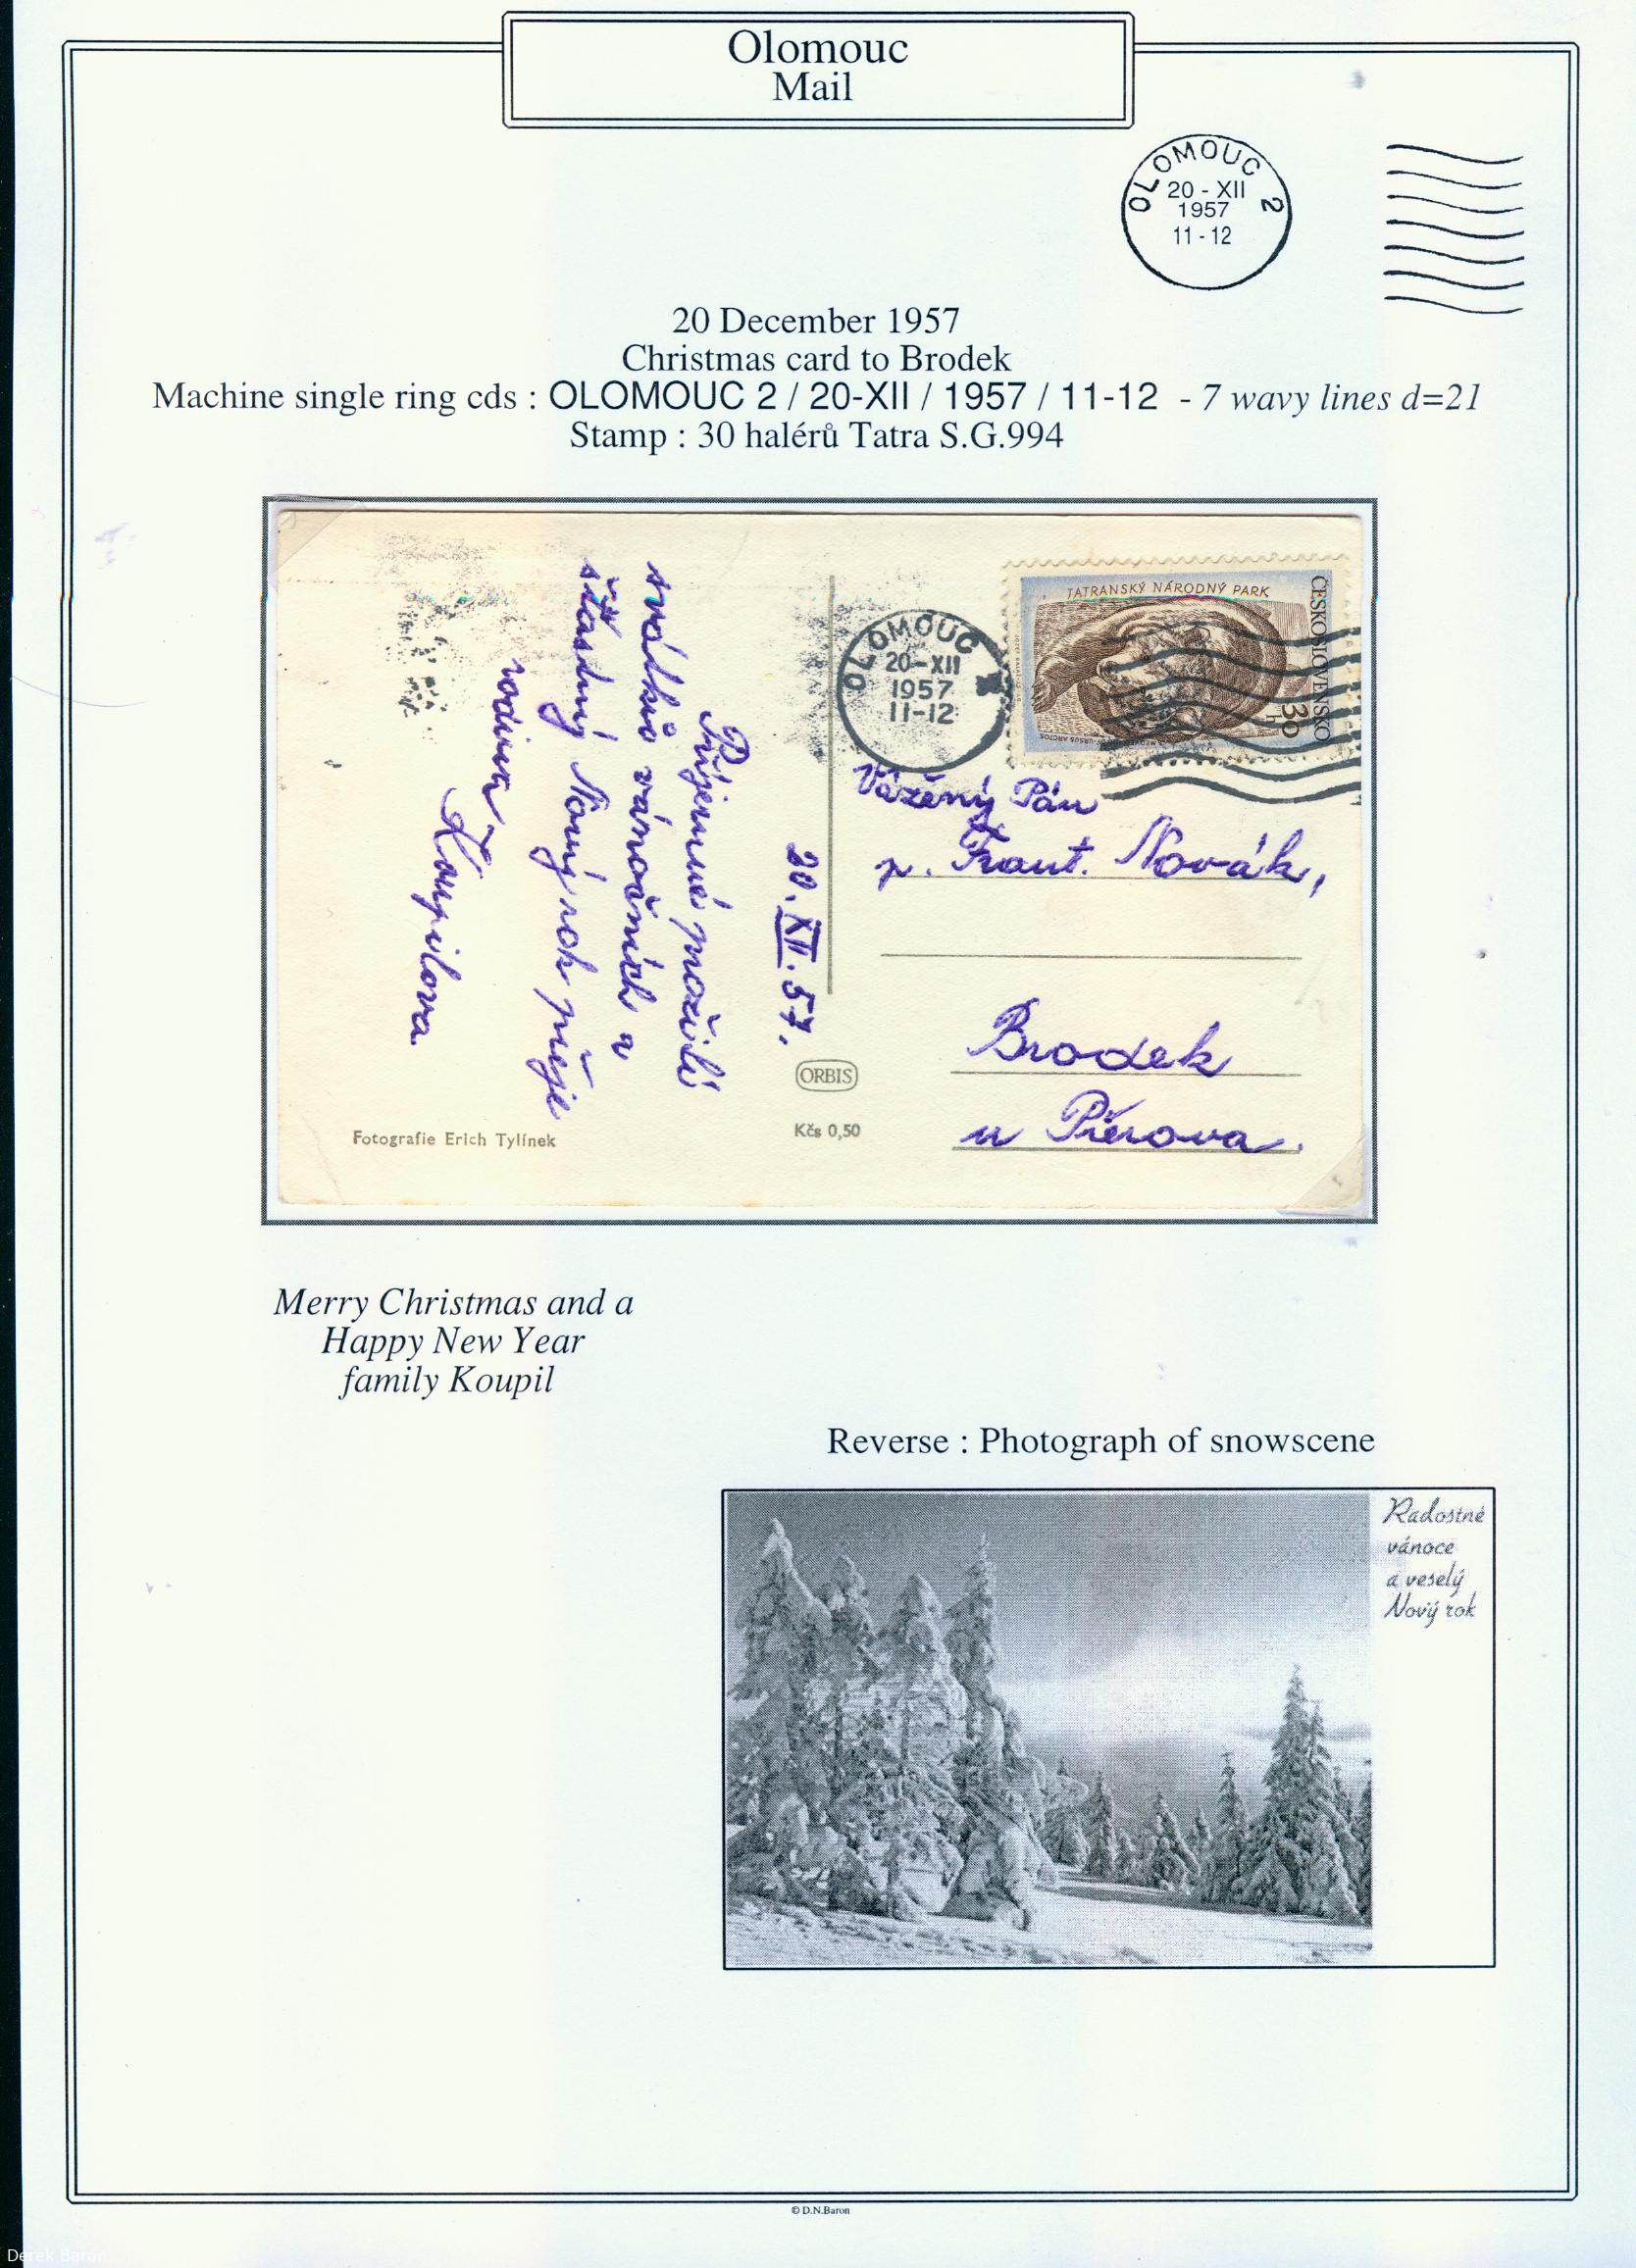 Olomouc
Mail
OLOMOUC 2
20 - XII
1957
11 - 12
20 December 1957
Christmas card to Brodek
Machine single ring cds : OLOMOUC 2 / 20-XII / 1957 / 11-12 - 7 wavy lines d=21
Stamp : 30 halérů Tatra S.G.994
TATRANSKÝ NÁRODNÝ PARK
ČESKOSLOVENSKO
30 h
URSUS ARCTOS
OLOMOUC
20-XII
1957
11-12
20. XII. 57.
Příjemné prožití
svátků vánočních a
šťastný Nový rok přeje
rodina
Koupilova
Vážený Pán
p. Frant. Novák,
Brodek
u Přerova.
ORBIS
Kčs 0,50
Fotografie Erich Tylínek
Merry Christmas and a
Happy New Year
family Koupil
Reverse : Photograph of snowscene
Radostné
vánoce
a veselý
Nový rok
© D.N.Baron
Derek Baron